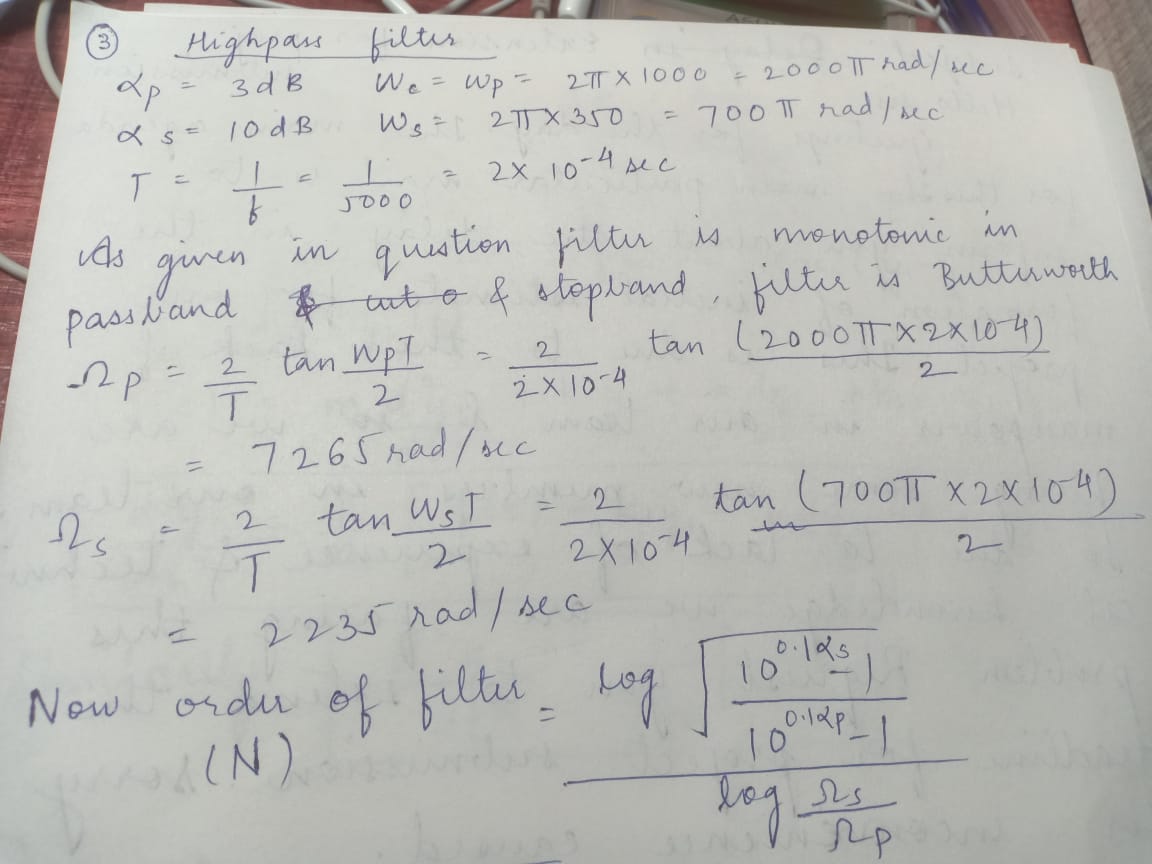 ③ Highpass filter
αp = 3dB Wc = Wp = 2π × 1000 = 2000π rad/sec
αs = 10dB Ws = 2π × 350 = 700π rad/sec
T = 1/f = 1/5000 = 2 × 10⁻⁴ sec
As given in question filter is monotonic in
passband & stopband, filter is Butterworth
Ωp = 2/T tan WpT/2 = 2/(2×10⁻⁴) tan (2000π×2×10⁻⁴)/2
= 7265 rad/sec
Ωs = 2/T tan WsT/2 = 2/(2×10⁻⁴) tan (700π×2×10⁻⁴)/2
= 2235 rad/sec
Now order of filter (N) = log √((10^(0.1αs) - 1)/(10^(0.1αp) - 1)) / log (Ωs/Ωp)